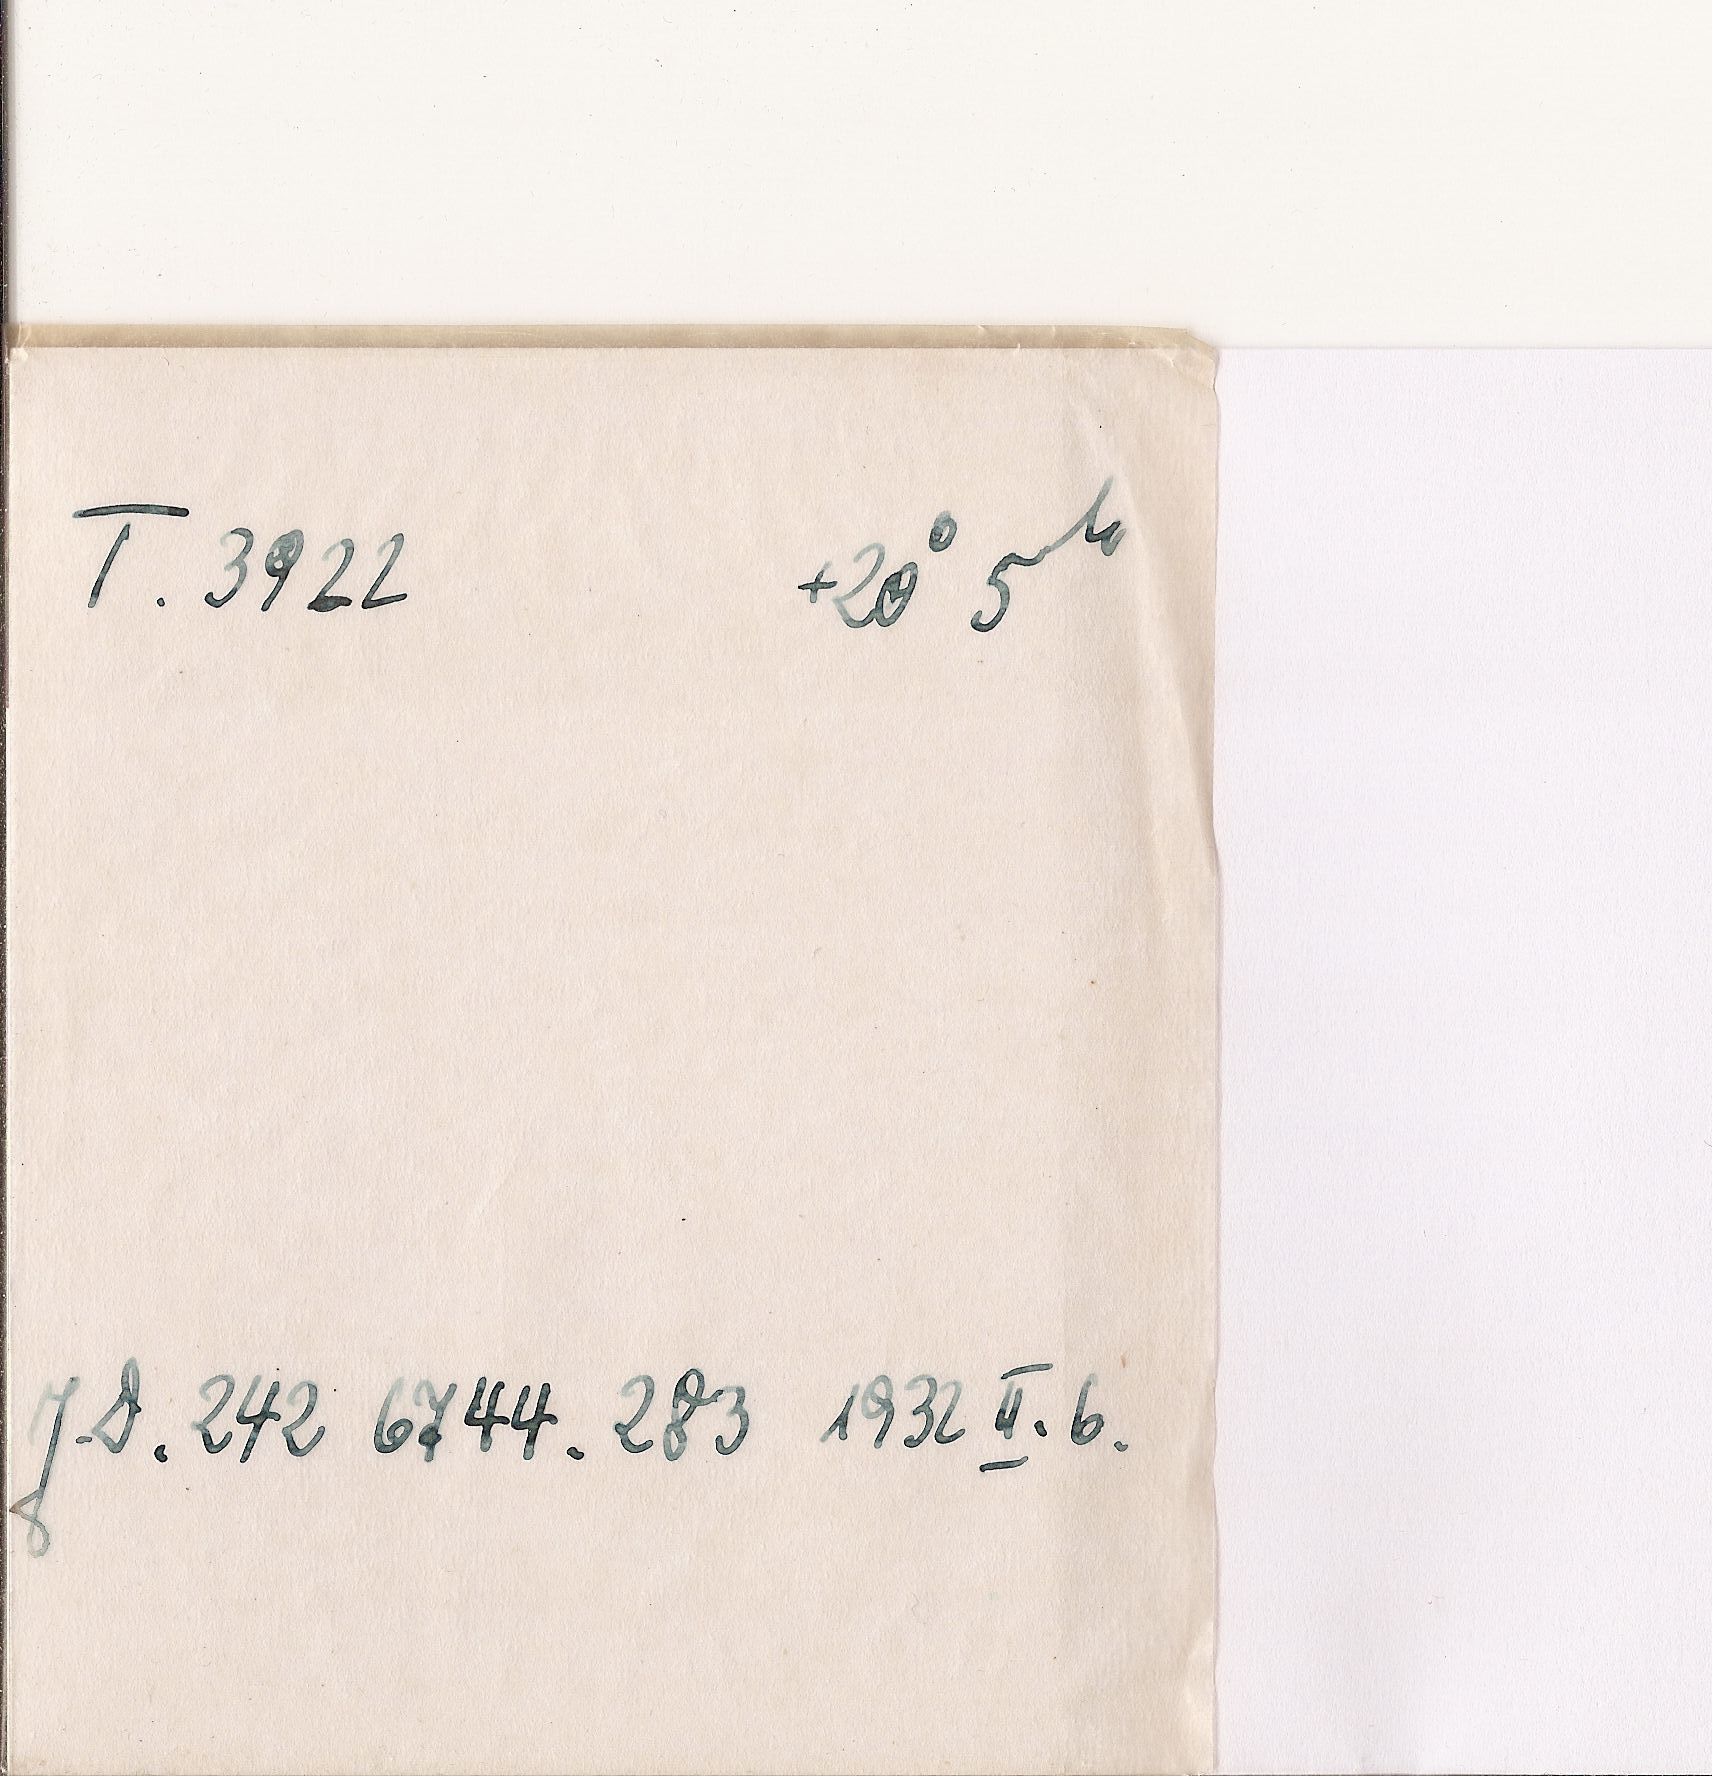 T. 3922 +20° 5ʰ
J.D. 242 6744. 283 1932 II. 6.
8